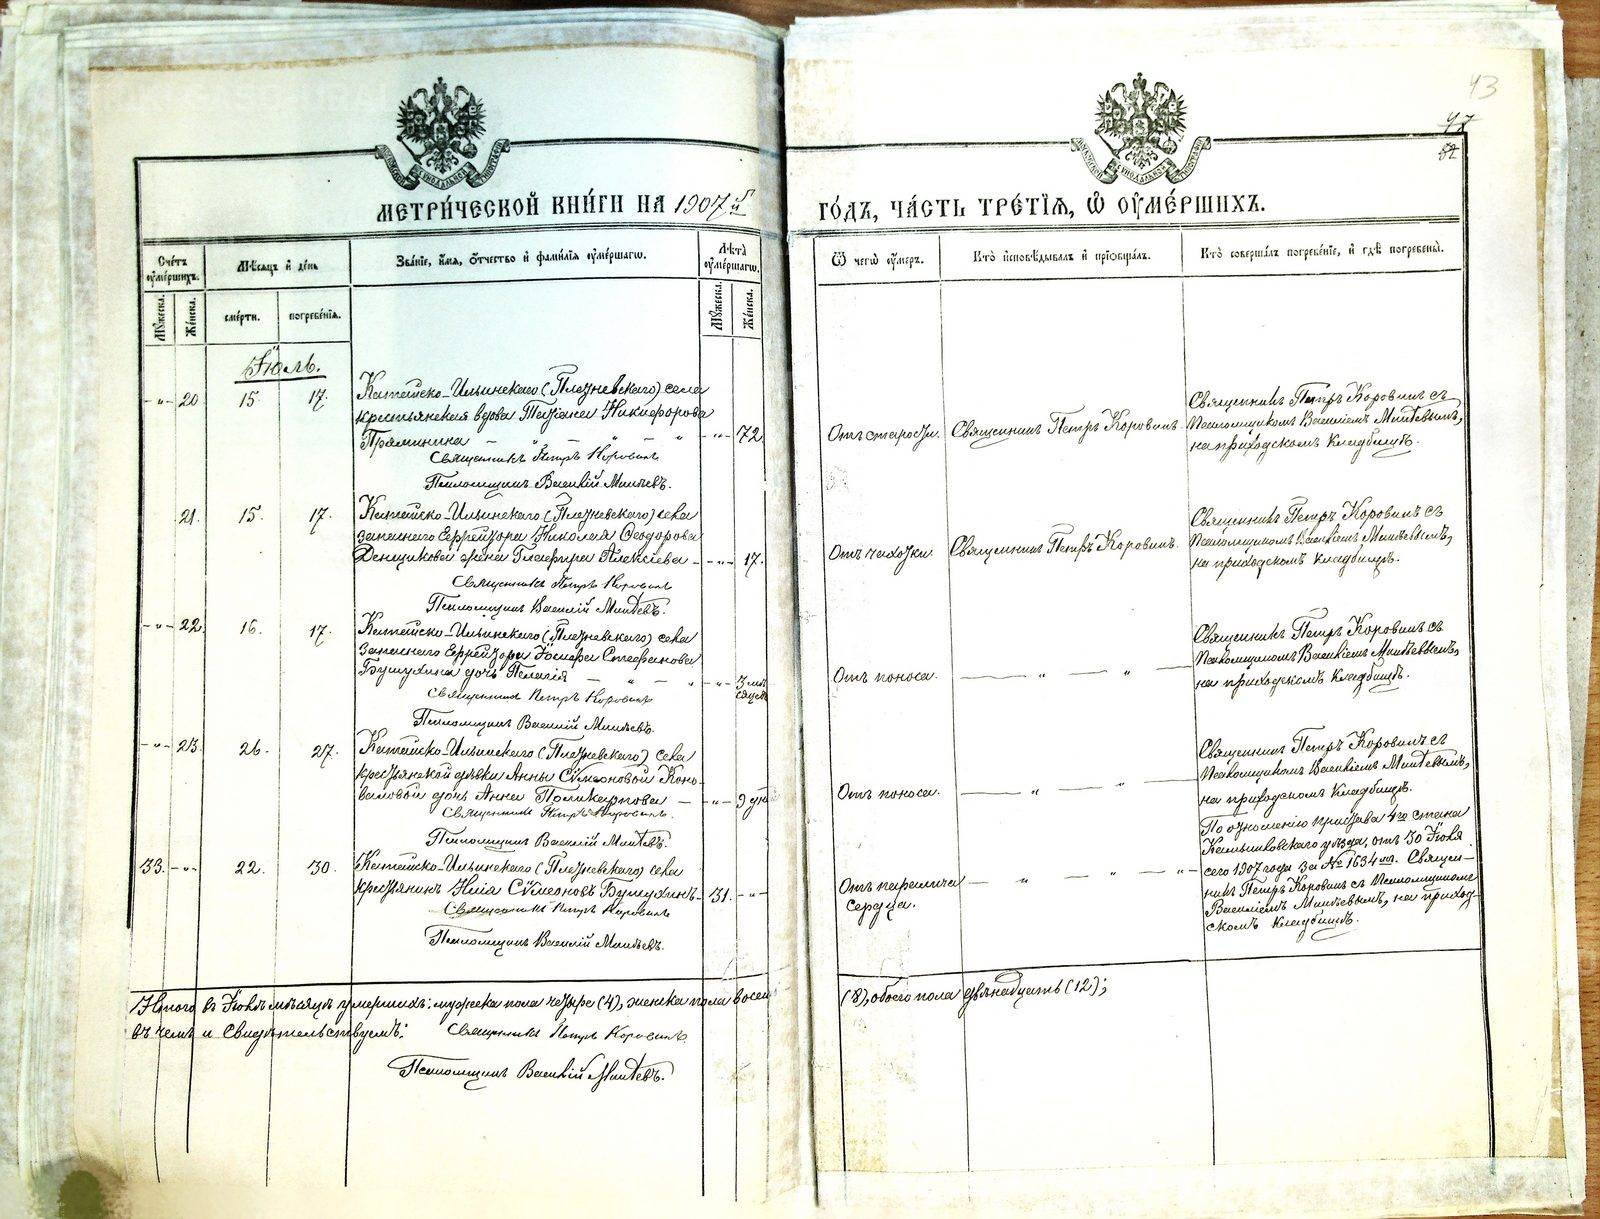 43
47
82
МЕТРИ́ЧЕСКОЙ КНИ́ГИ НА 1907 й
ГО́ДЪ, ЧА́СТЬ ТРЕ́ТІЯ, Ѿ ОУМЕ́РШИХЪ.
Сче́тъ оуме́ршихъ.
Мѣ́сяцъ и́ де́нь
Зва́нїе, и́мя, ѻ́тчество и́ фами́лїя оуме́ршагѡ.
Лѣ́та оуме́ршагѡ.
Му́жеска.
Же́нска.
сме́рти.
погребе́нїя.
Му́жеска.
Же́нска.
Ѿ чегѡ̀ оу́меръ.
Кто̀ и́сповѣ́дывалъ и́ прїѡбща́лъ.
Кто̀ соверша́лъ погребе́нїе, и́ гдѣ̀ погребены̀.
Іюль.
-"- 20 15. 17.
Катайско-Ильинскаго (Плезневскаго) села
крестьянская вдова Татіана Никифорова
Пряминина - " - " - " -"- 72
Священникъ Петръ Коровинъ
Псаломщикъ Василій Минѣевъ.
Отъ старости.
Священникъ Петръ Коровинъ.
Священникъ Петръ Коровинъ съ
Псаломщикомъ Василіемъ Минѣевымъ,
на приходскомъ кладбищѣ.
21. 15. 17.
Катайско-Ильинскаго (Плезневскаго) села
запаснаго Ефрейтора Николая Ѳеодорова
Денщикова жена Глафира Алексіева - -"- 17.
Священникъ Петръ Коровинъ
Псаломщикъ Василій Минѣевъ.
Отъ чахотки.
Священникъ Петръ Коровинъ.
Священникъ Петръ Коровинъ съ
Псаломщикомъ Василіемъ Минѣевымъ,
на приходскомъ кладбищѣ.
-"- 22. 16. 17.
Катайско-Ильинскаго (Плезневскаго) села
запаснаго Ефрейтора Іосифа Стефанова
дочь Пелагія - " - " -"- 3 мѣсяцевъ
Священникъ Петръ Коровинъ
Псаломщикъ Василій Минѣевъ.
Отъ поноса.
— " — " —
Священникъ Петръ Коровинъ съ
Псаломщикомъ Василіемъ Минѣевымъ,
на приходскомъ кладбищѣ.
-"- 23. 26. 27.
Катайско-Ильинскаго (Плезневскаго) села
крестьянской дѣвки Анны Сѵмеоновой Коно-
валовой дочь Анна Поликарпова - -"- 9 дн
Священникъ Петръ Коровинъ.
Псаломщикъ Василій Минѣевъ.
Отъ поноса.
— " — " —
Священникъ Петръ Коровинъ съ
Псаломщикомъ Василіемъ Минѣевымъ,
на приходскомъ кладбищѣ.
33. -"- 22. 30.
Катайско-Ильинскаго (Плезневскаго) села
крестьянинъ Илія Сѵмеоновъ 31. -"-
Священникъ Петръ Коровинъ
Псаломщикъ Василій Минѣевъ.
Отъ паралича
сердца.
— " — " — "
По отношенію пристава 4го стана
Камышловскаго уѣзда, отъ 30 Іюля
сего 1907 года за № 1634 мъ. Священ-
никъ Петръ Коровинъ съ Псаломщикомъ
Василіемъ Минѣевымъ, на приход-
скомъ кладбищѣ.
Итого въ Іюлѣ мѣсяцѣ умершихъ: мужеска пола четыре (4), женска пола восемь
(8), обоего пола двѣнадцать (12);
въ чемъ и свидѣтельствуемъ: Священникъ Петръ Коровинъ
Псаломщикъ Василій Минѣевъ.